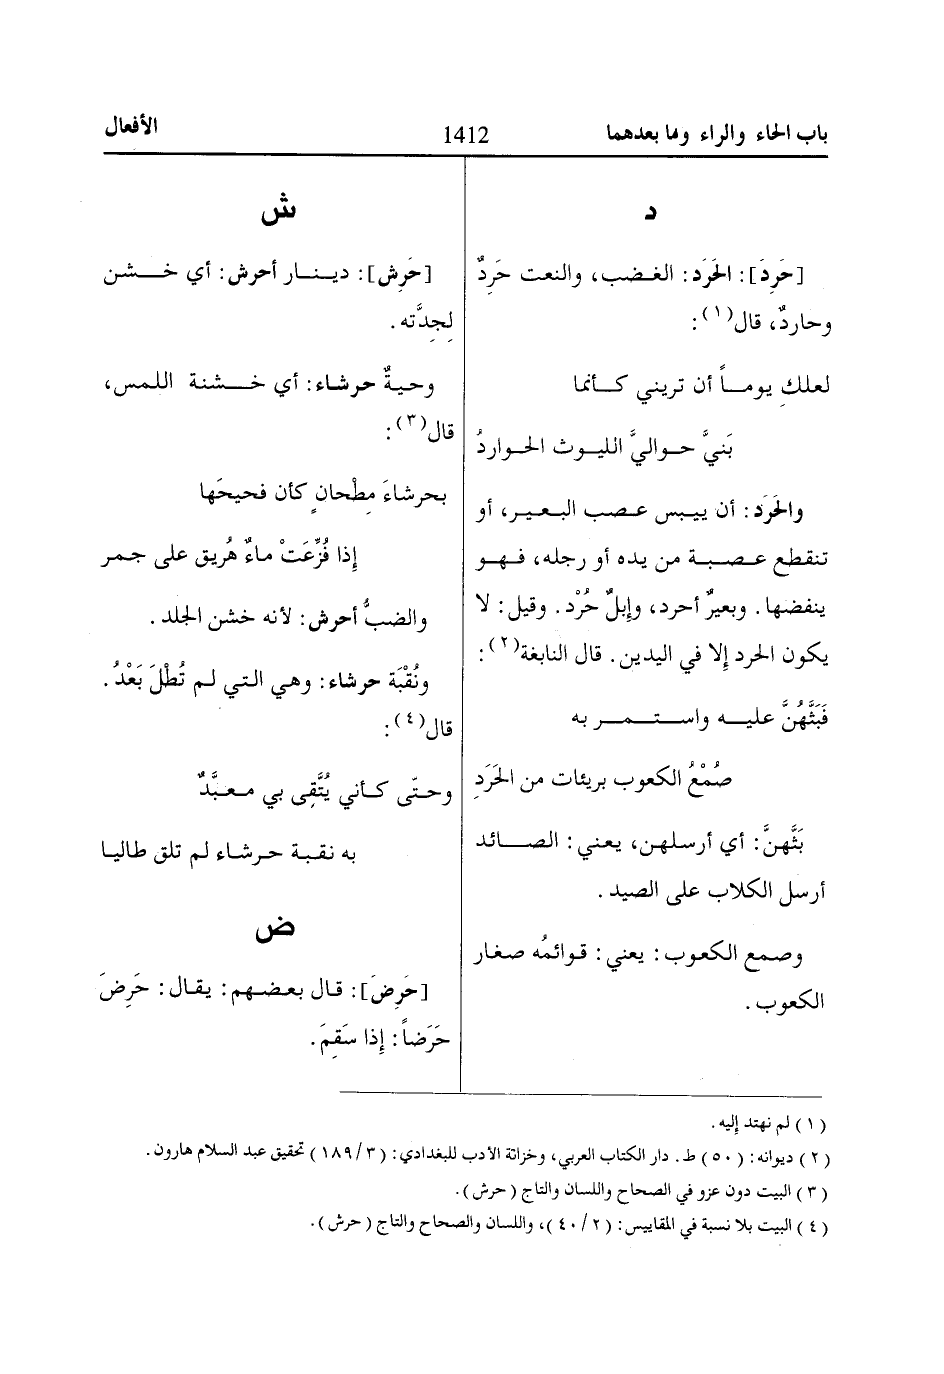 باب الحاء والراء وما بعدهما 1412 الأفعال
د
[حَرِدَ]: الحَرَد: الغضب، والنعت حَرِدٌ
وحاردٌ، قال(١):
لعلكِ يوماً أن تريني كأنما
بَنيَّ حواليَّ الليوث الحواردُ
والحَرَد: أن ييبس عصب البعير، أو
تنقطع عصبة من يده أو رجله، فهو
ينفضها. وبعيرٌ أحرد، وإبلٌ حُرْد. وقيل: لا
يكون الحرد إلا في اليدين. قال النابغة(٢):
فَبَثَّهُنَّ عليه واستمر به
صُمْعُ الكعوب بريئات من الحَرَدِ
بَثَّهنَّ: أي أرسلهن، يعني: الصائد
أرسل الكلاب على الصيد.
وصمع الكعوب: يعني: قوائمُه صغار
الكعوب.
ش
[حَرِش]: دينار أحرش: أي خشن
لِجِدَّته.
وحيةٌ حرشاء: أي خشنة اللمس،
قال(٣):
بحرشاءَ مِطْحانٍ كأن فحيحَها
إذا فُزِّعَتْ ماءٌ هُريق على جمر
والضبُّ أحرش: لأنه خشن الجلد.
ونُقْبَة حرشاء: وهي التي لم تُطْلَ بَعْدُ.
قال(٤):
وحتّى كأني يُتَّقى بي معبَّدٌ
به نقبة حرشاء لم تلق طاليا
ض
[حَرِضَ]: قال بعضهم: يقال: حَرِضَ
حَرَضاً: إذا سَقِمَ.
(١) لم نهتد إليه.
(٢) ديوانه: (٥٠) ط. دار الكتاب العربي، وخزانة الأدب للبغدادي: (٣/١٨٩) تحقيق عبد السلام هارون.
(٣) البيت دون عزو في الصحاح واللسان والتاج (حرش).
(٤) البيت بلا نسبة في المقاييس: (٢/٤٠)، واللسان والصحاح والتاج (حرش).